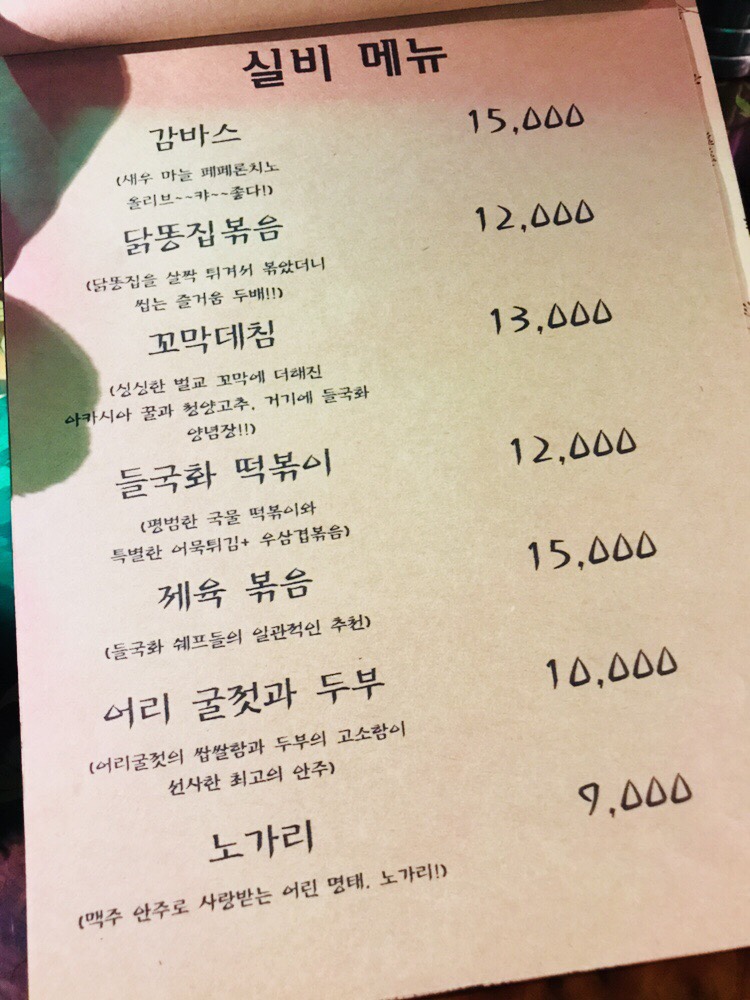 실비 메뉴
감바스 15,000
(새우 마늘 페페론치노
올리브~~캬~~좋다!)
닭똥집볶음 12,000
(닭똥집을 살짝 튀겨서 볶았더니
씹는 즐거움 두배!!)
꼬막데침 13,000
(싱싱한 벌교 꼬막에 더해진
아카시아 꿀과 청양고추, 거기에 들국화
양념장!!)
들국화 떡볶이 12,000
(평범한 국물 떡볶이와
특별한 어묵튀김+ 우삼겹볶음)
제육 볶음 15,000
(들국화 쉐프들의 일관적인 추천)
어리 굴젓과 두부 10,000
(어리굴젓의 쌉쌀함과 두부의 고소함이
선사한 최고의 안주)
노가리 9,000
(맥주 안주로 사랑받는 어린 명태, 노가리!)